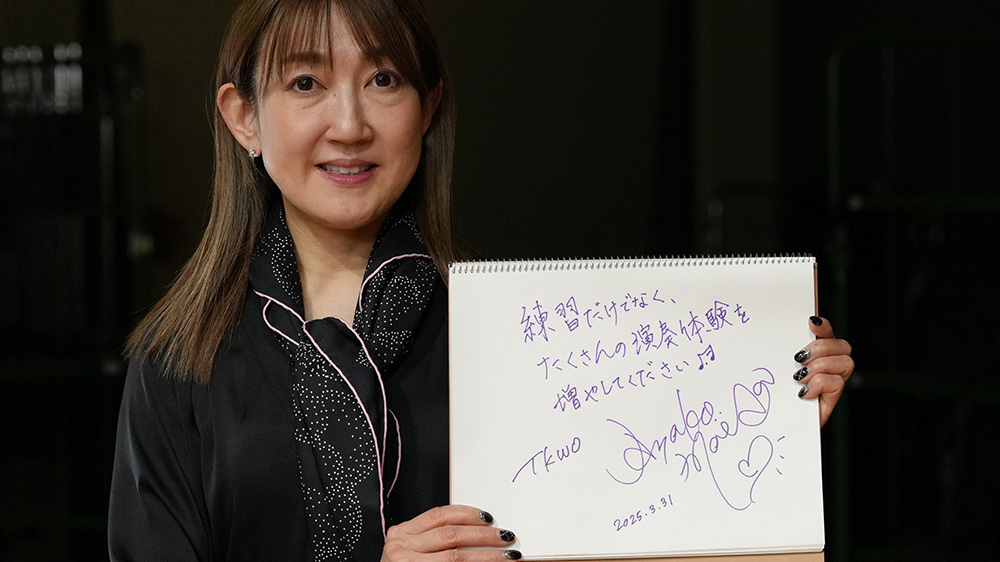 練習だけでなく、
たくさんの演奏体験を
増やしてください♪♬
TKWO
Ayako
Maeda
2025.3.31